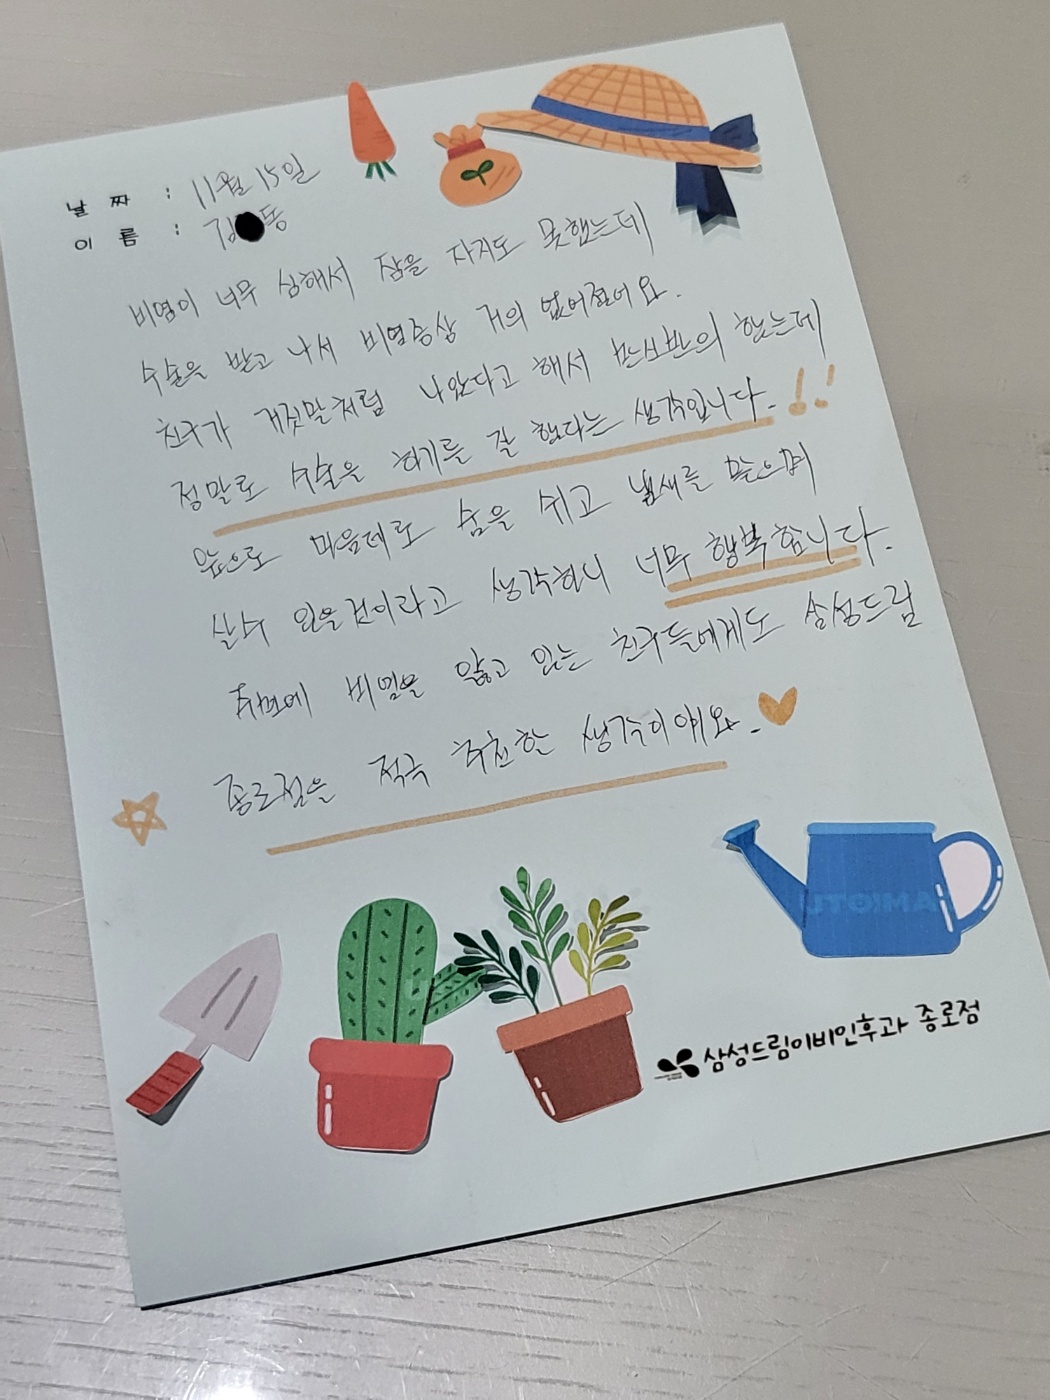 날 짜 : 11월 15일
이 름 : 김●동
비염이 너무 심해서 잠을 자지도 못했는데
수술을 받고 나서 비염증상 거의 없어졌어요.
친구가 거짓말처럼 나았다고 해서 반신반의 했는데
정말로 수술을 하기를 잘 했다는 생각입니다.!!
앞으로 마음데로 숨을 쉬고 냄새를 맡으며
살수 있을것이라고 생각하니 너무 행복합니다.
주변에 비염을 앓고 있는 친구들에게도 삼성드림
종로점을 적극 추천할 생각이예요.
삼성드림이비인후과 종로점